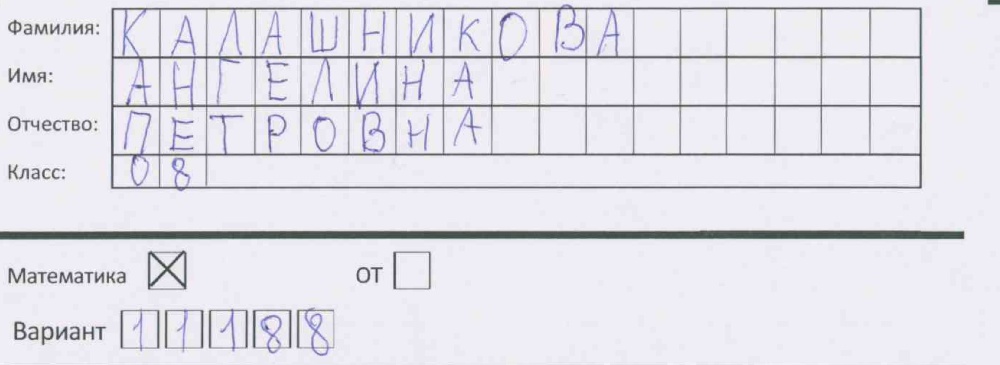 Фамилия: КАЛАШНИКОВА
Имя: АНГЕЛИНА
Отчество: ПЕТРОВНА
Класс: 08
Математика ОТ
Вариант 11188